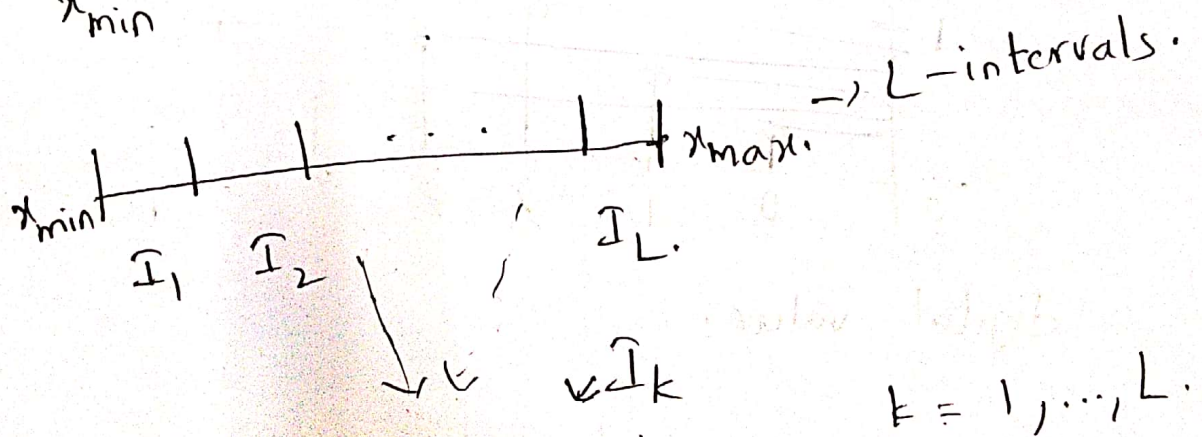 x min
→ L-intervals.
x min . . . x max.
I1 I2 IL.
Ik k = 1, ..., L.